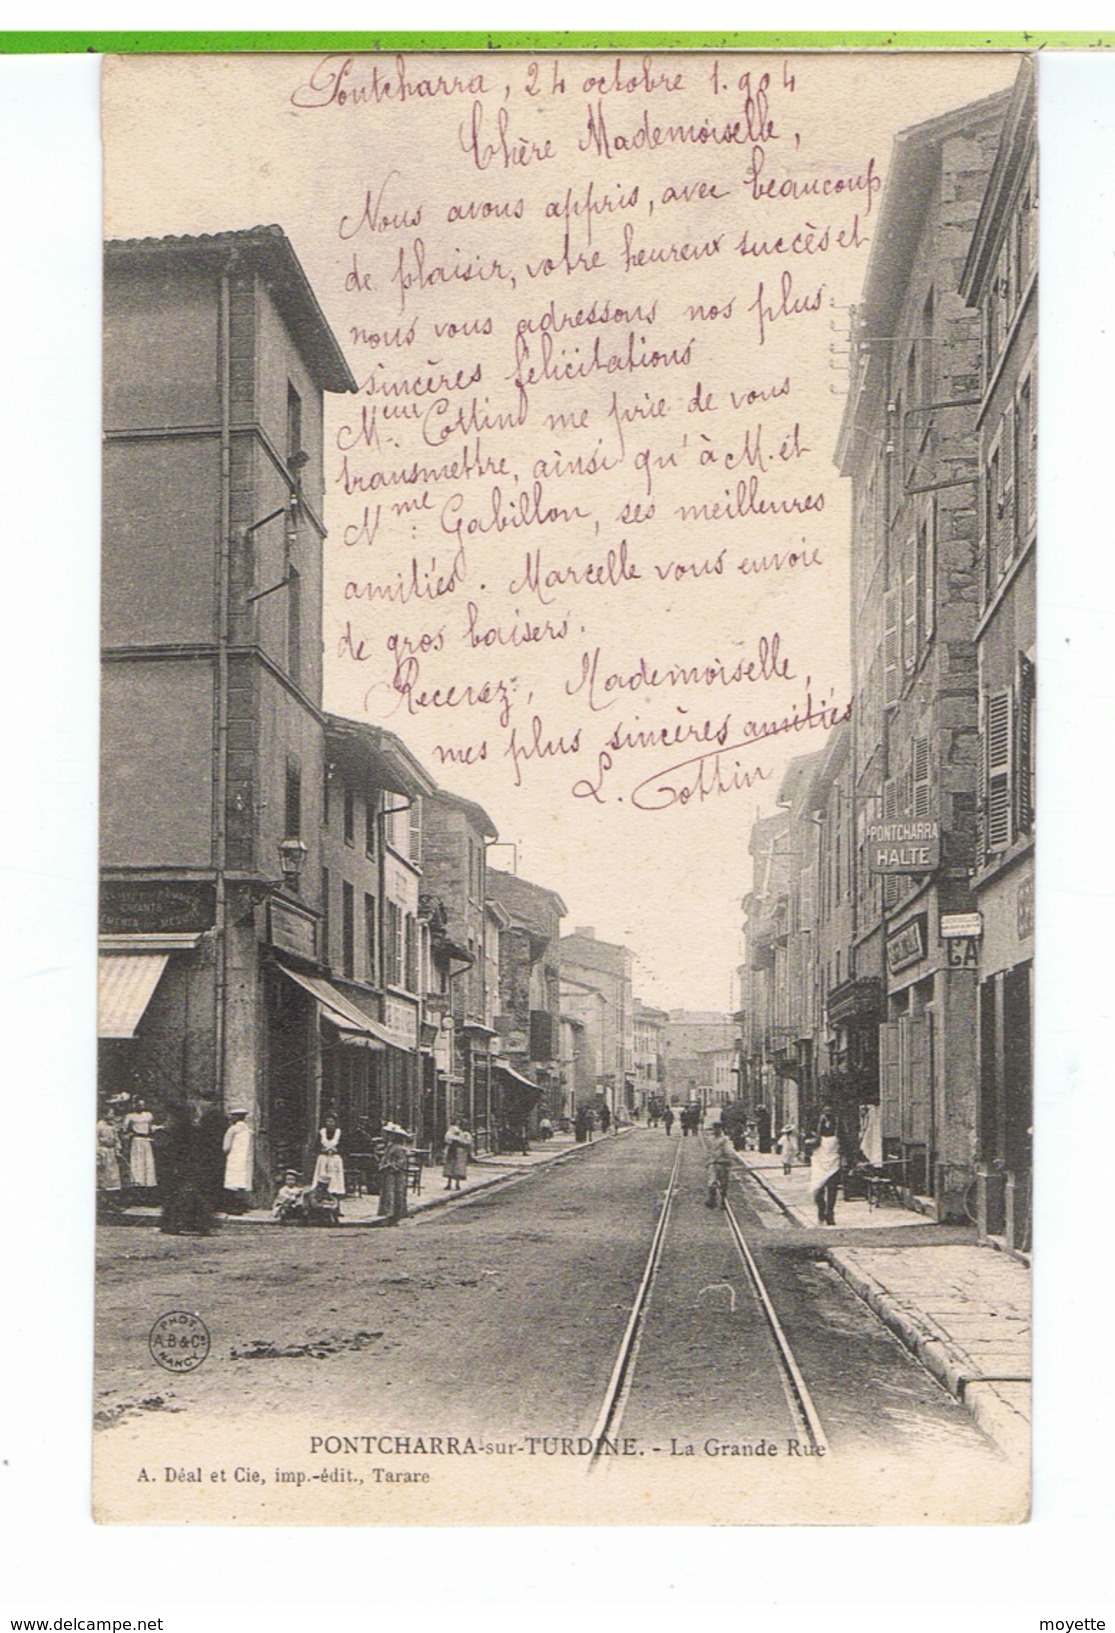 Pontcharra, 24 octobre 1.904
Chère Mademoiselle,
Nous avons appris, avec beaucoup
de plaisir, votre heureux succès et
nous vous adressons nos plus
sincères félicitations
Mme. Cottin me prie de vous
transmettre, ainsi qu'à M. et
Mme. Gabillon, ses meilleures
amitiés. Marcelle vous envoie
de gros baisers.
Recevez, Mademoiselle,
mes plus sincères amitiés
L. Cottin
PONTCHARRA
HALTE
CA
PHOT.
A.B & Cie
NANCY
PONTCHARRA-sur-TURDINE. - La Grande Rue
A. Déal et Cie, imp.-édit., Tarare
www.delcampe.net
moyette